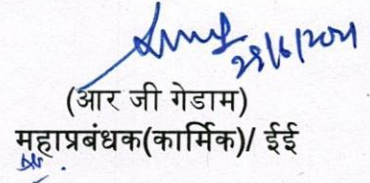 28/6/2021
(आर जी गेडाम)
महाप्रबंधक(कार्मिक)/ ईई